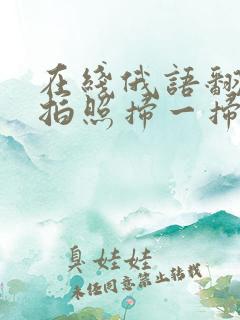 在綫俄語翻
拍照掃一掃
臭娃娃
未经同意禁止转载